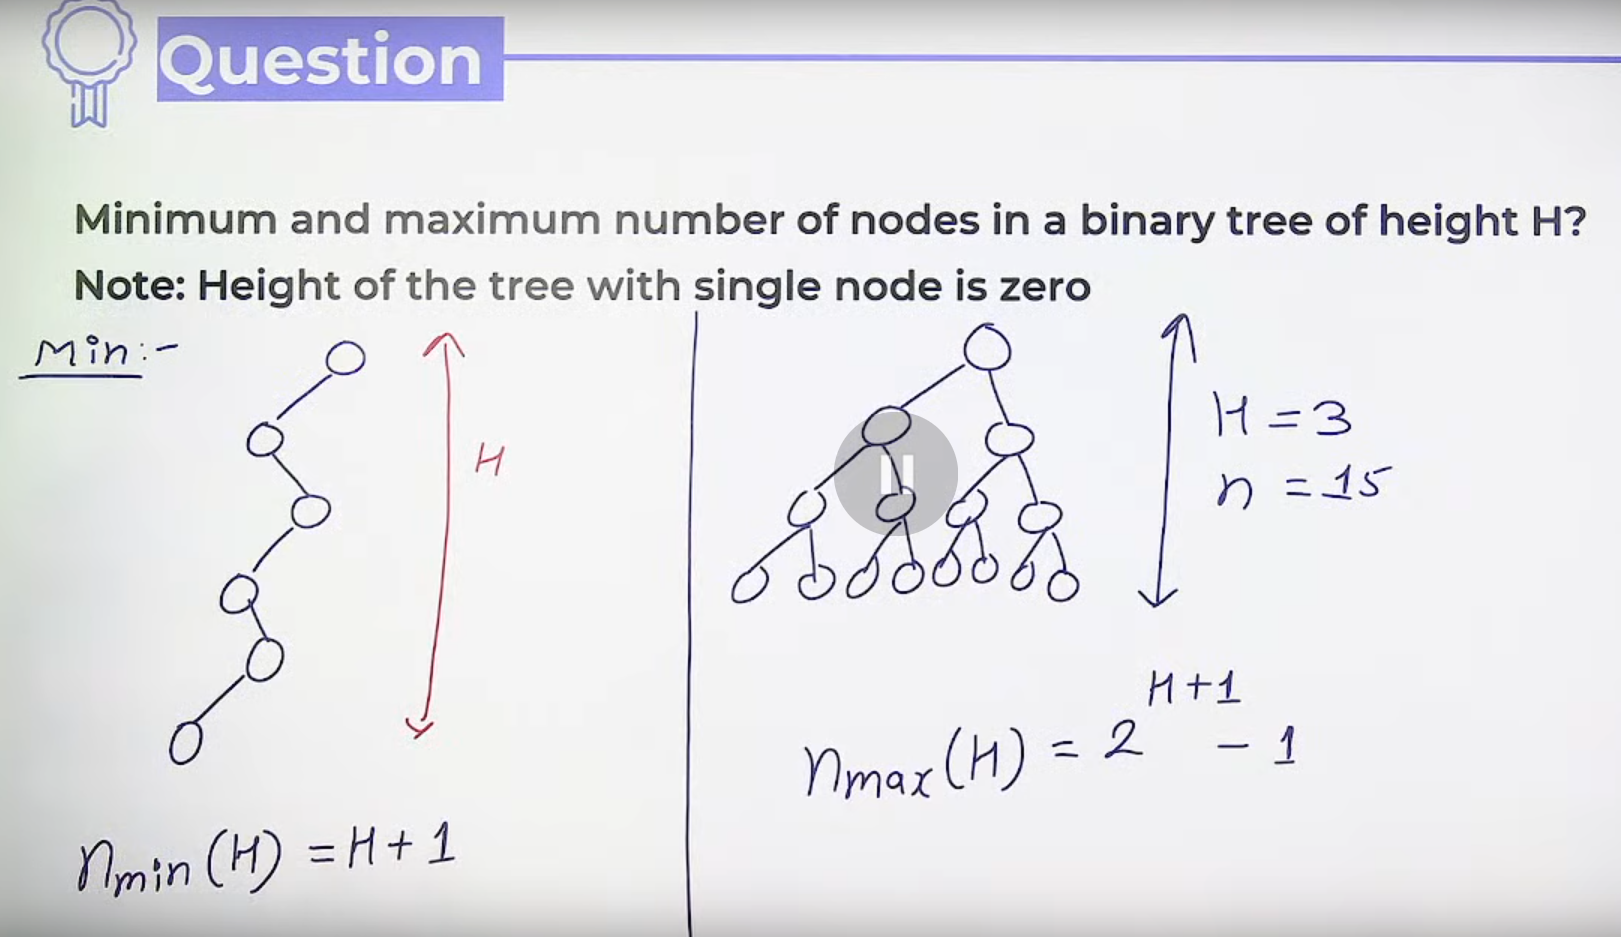 Question
Minimum and maximum number of nodes in a binary tree of height H?
Note: Height of the tree with single node is zero
Min:-
H
n_min(H) = H+1
H = 3
n = 15
n_max(H) = 2^(H+1) - 1